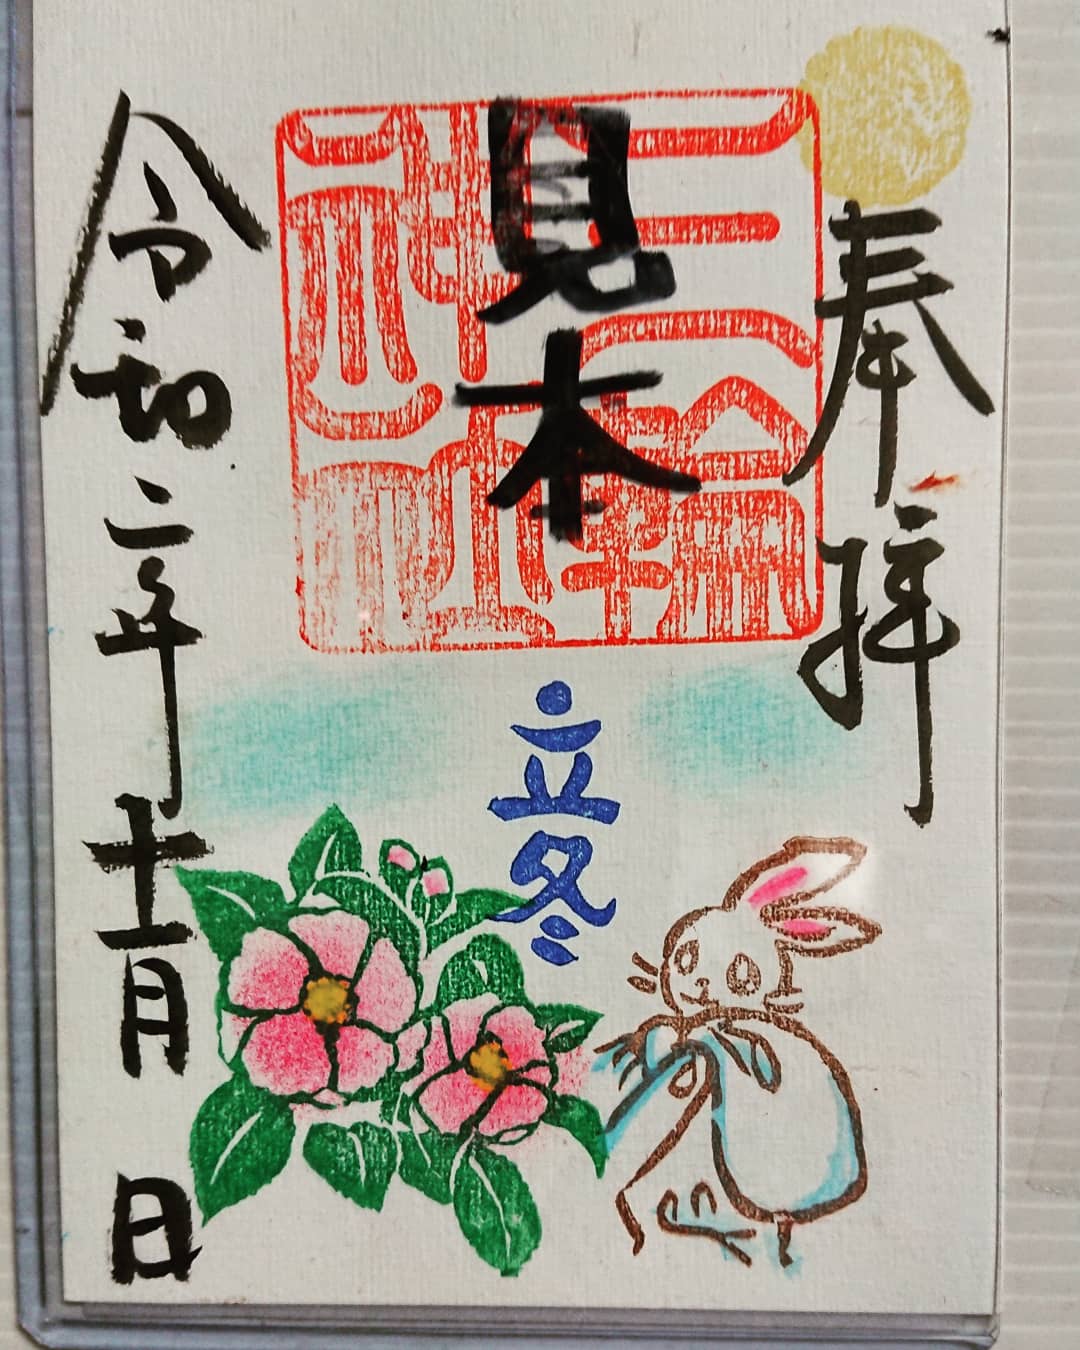 奉拝
三輪
神社
見本
立冬
令和二年十一月 日